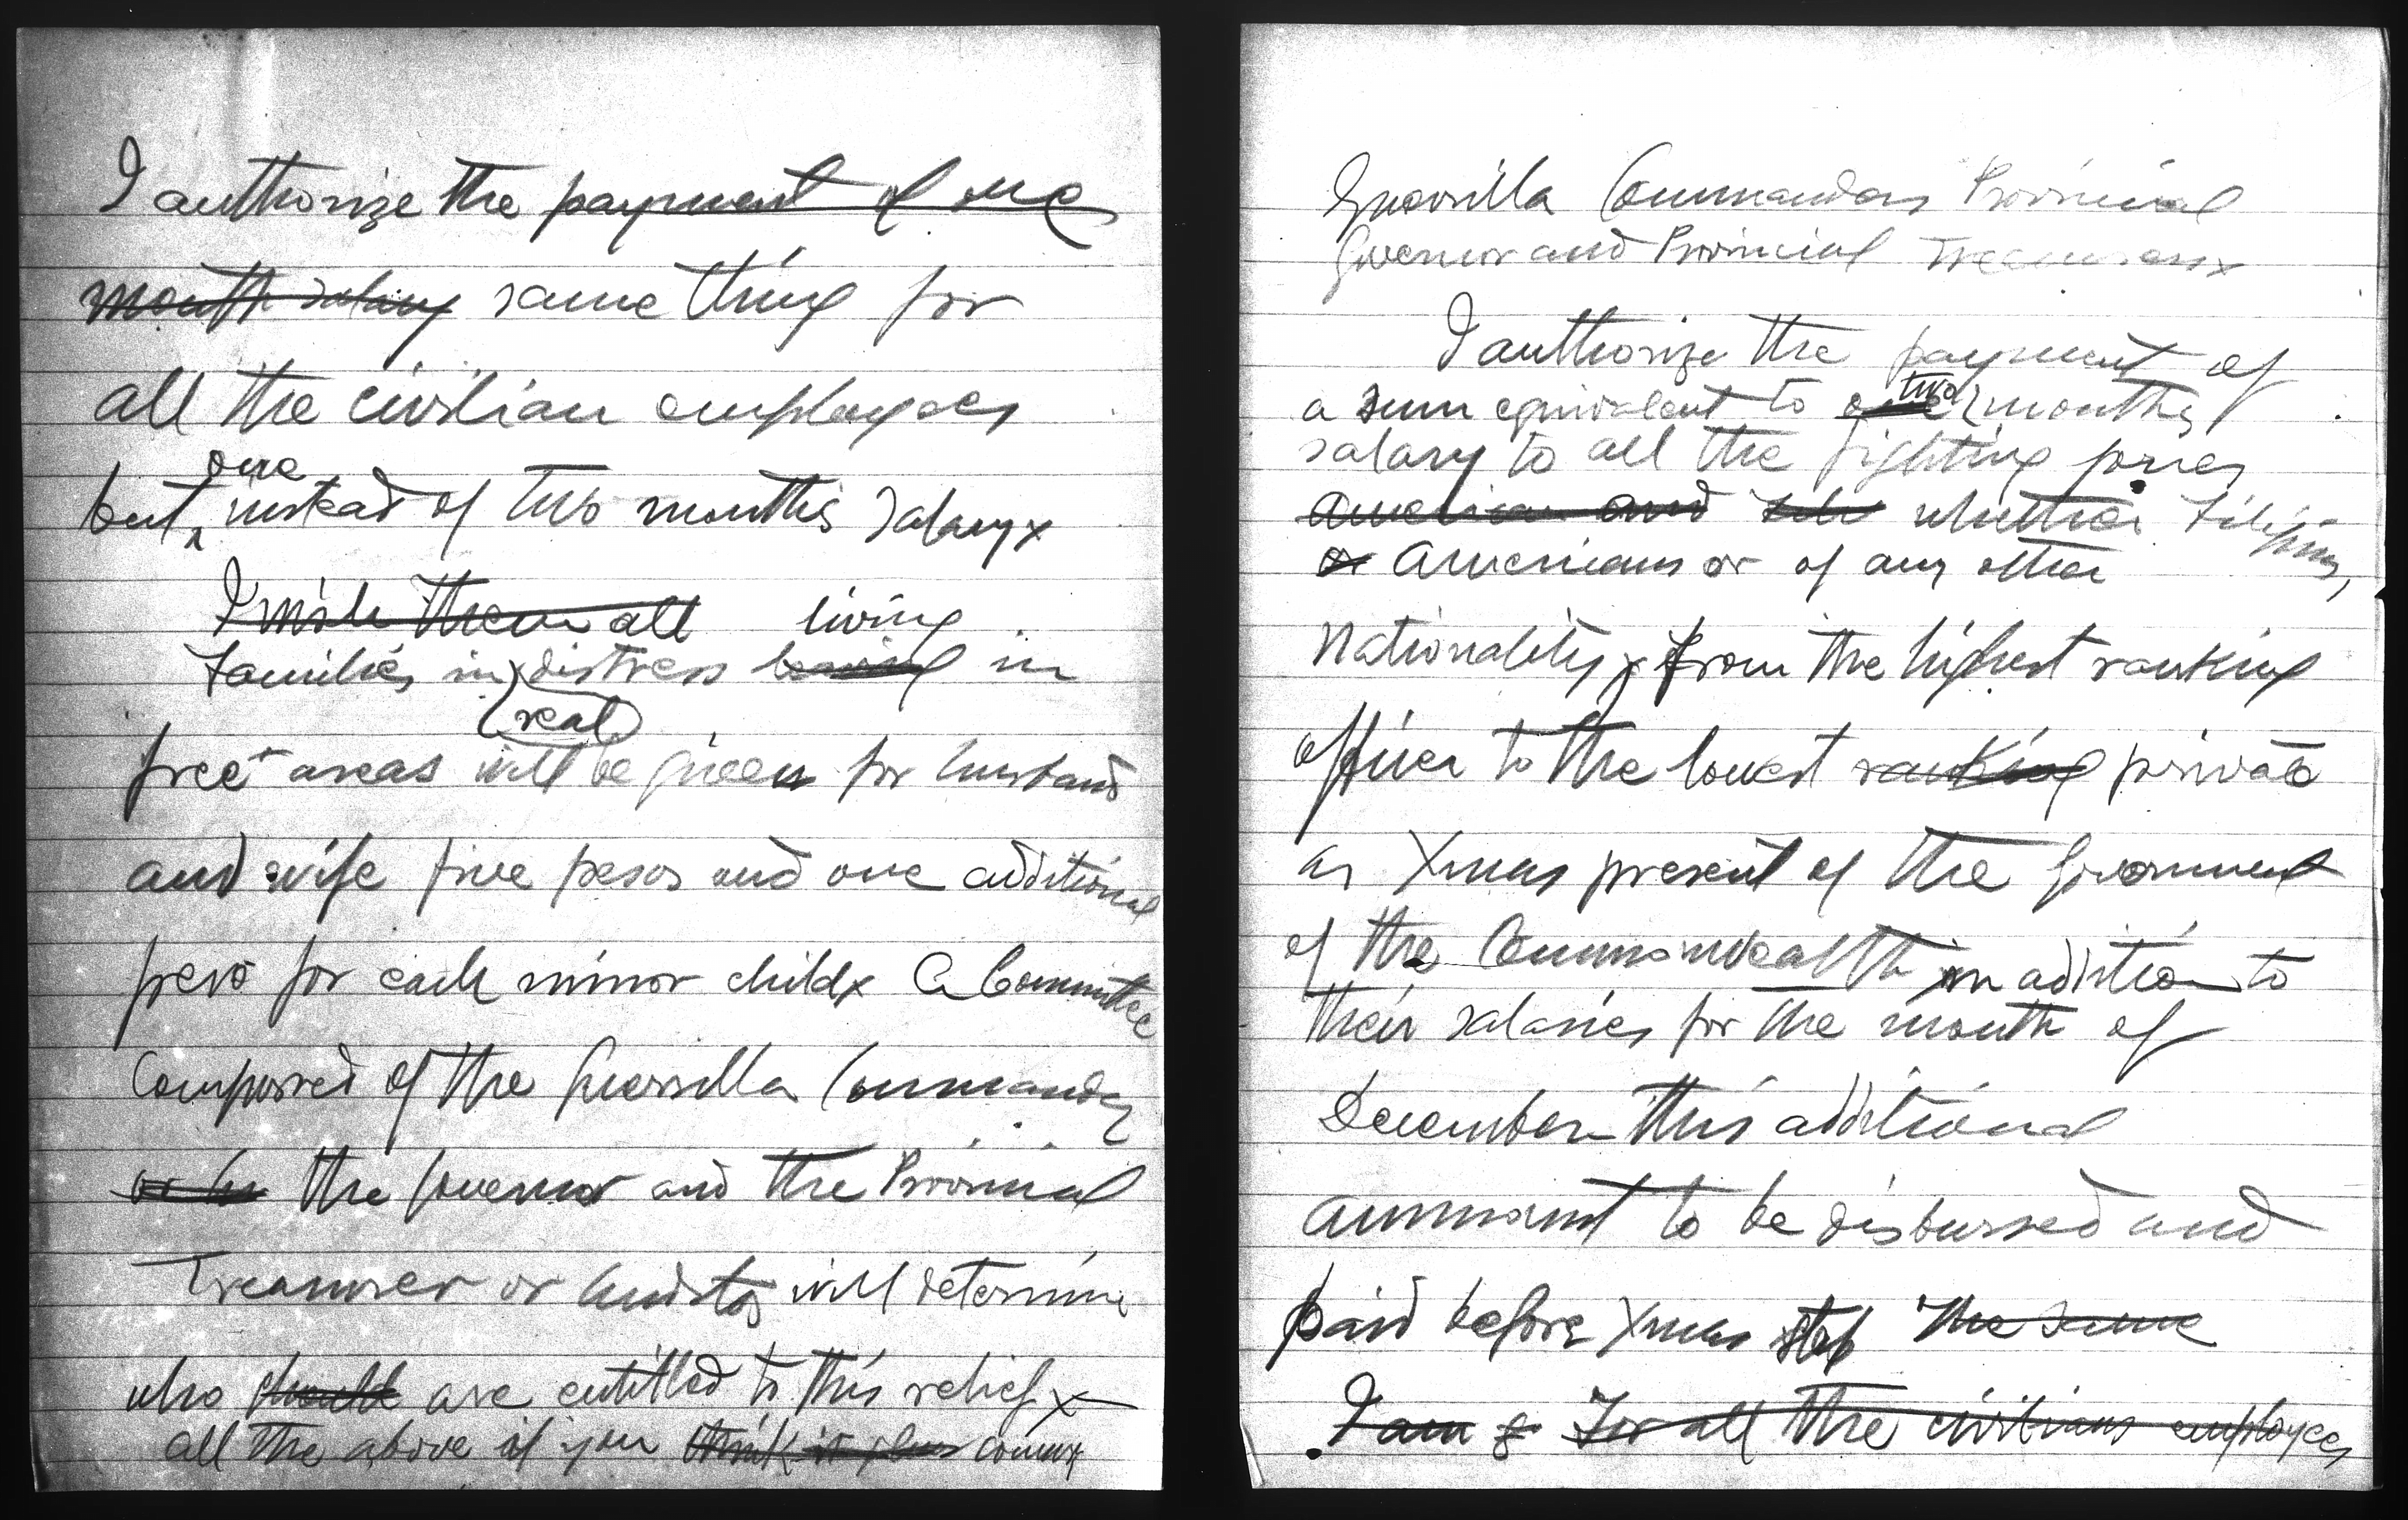 I authorize the payment of one
month salary same thing for
all the civilian employees
one
but instead of two months salary x
I wish them all living
Families in distress in
real
free areas will be given for husband
and wife five pesos and one additional
peso for each minor child x A Committee
Composed of the Guerrilla Commander
the Governor and the Provincial
Treasurer or Auditor will determine
who should are entitled to this relief x
all the above if you think it concur
Guerrilla Commanders Provincial
Governor and Provincial Treasurers x
I authorize the payment of
two
a sum equivalent to one months
salary to all the fighting forces
American and whether Filipinos,
or Americans or of any other
Nationality x from the highest ranking
officer to the lowest ranking private
as Xmas present of the Government
of the Commonwealth in addition to
their salaries for the month of
December this additional
ammount to be disbursed and
paid before Xmas stop The same
I am For all the civilians employees